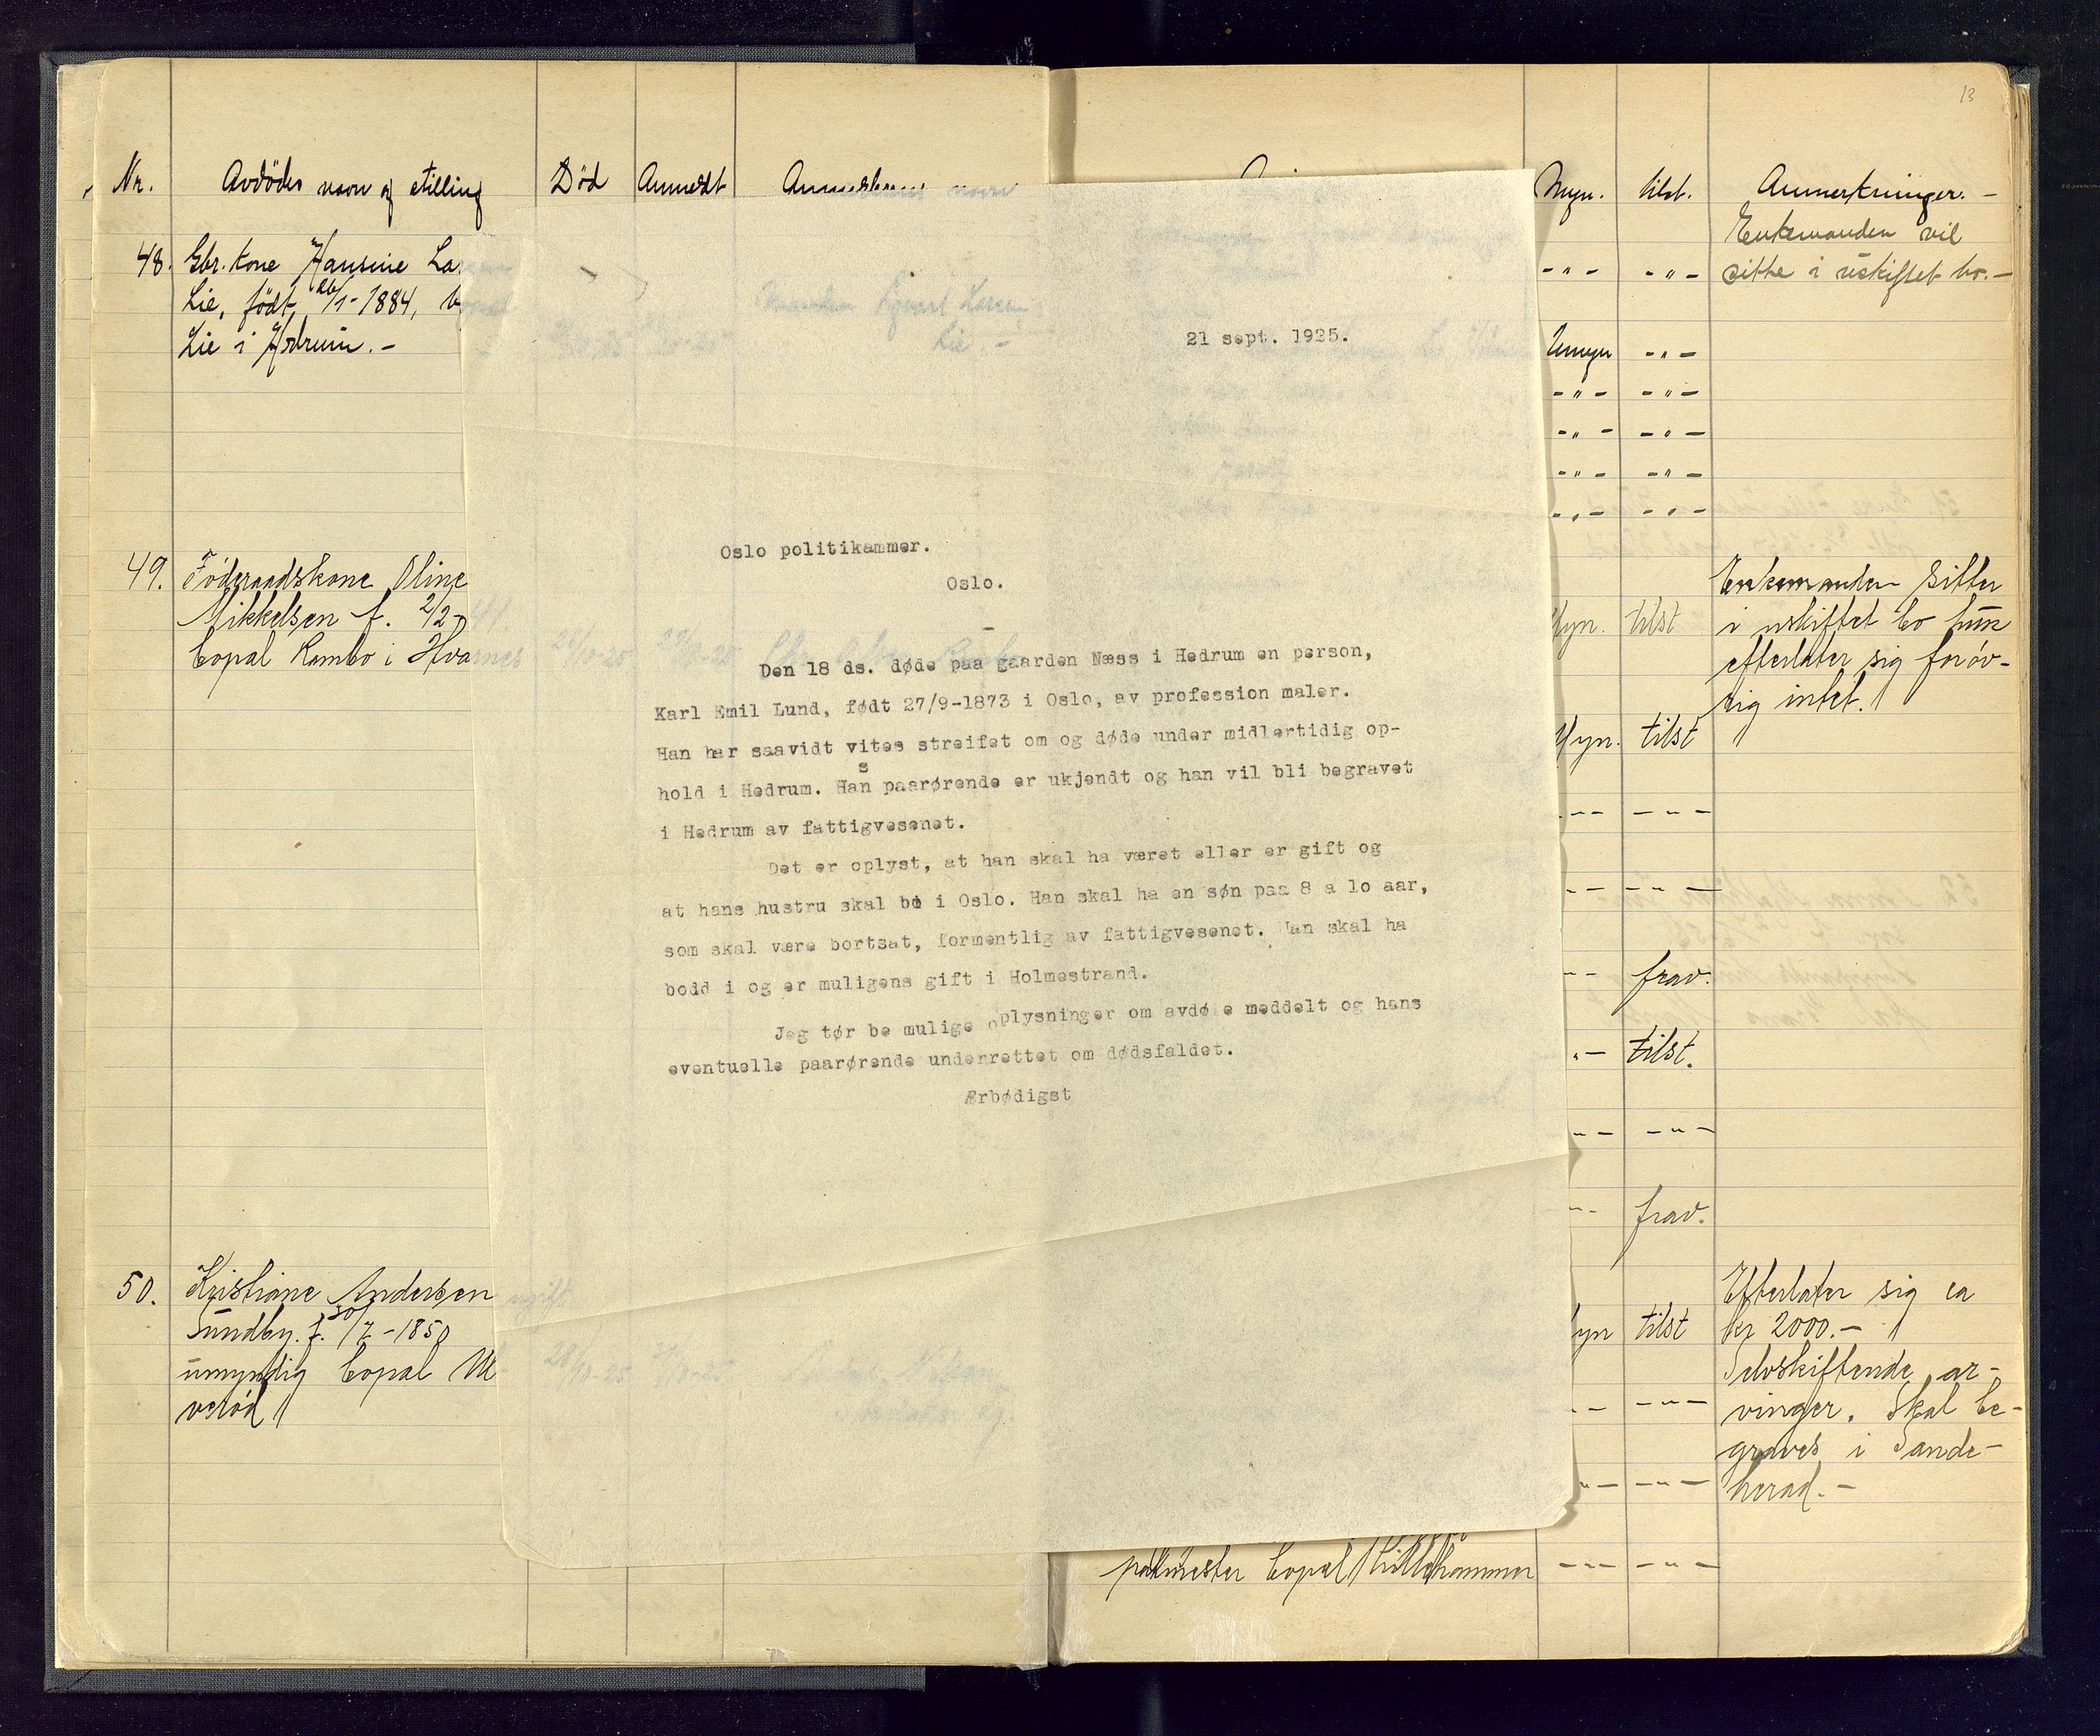 13
Nr. Avdödes navn og stilling Död Anmeldt Anmelderens navn Myn. tilst. Anmerkninger. -
48. Gbr. kone Hansine La
Lie, født 26/1-1884, b
Lie i Hedrum. -
Enkemanden vil
-"- -"- sitte i uskiftet bo. -
Umyn -"-
-"- -"-
-"- -"-
-"- -"-
-"- -"-
21 sept. 1925.
Oslo politikammer.
Oslo.
Den 18 ds. døde paa gaarden Næss i Hedrum en person,
Karl Emil Lund, født 27/9-1873 i Oslo, av profession maler.
Han har saavidt vites streifet om og døde under midlertidig op-
hold i Hedrum. Hans paarørende er ukjendt og han vil bli begravet
i Hedrum av fattigvesenet.
Det er oplyst, at han skal ha været eller er gift og
at hans hustru skal bo i Oslo. Han skal ha en søn paa 8 a lo aar,
som skal være bortsat, formentlig av fattigvesenet. Han skal ha
bodd i og er muligens gift i Holmestrand.
Jeg tør be mulige oplysninger om avdøde meddelt og hans
eventuelle paarørende underrettet om dødsfaldet.
Ærbødigst
49. Föderaadskone Oline
Mikkelsen f. 2/2-41.
bopal Rambo i Hvarnes
Enkemanden sitter
Myn. tilst i uskiftet bo hun
efterlater sig forøv-
rig intet.
Myn. tilst
-"- -"-
-"- -"-
-"- frav.
-"- tilst.
-"- -"-
-"- frav.
50. Kristiane Andersen
Sundby. f. 30/7-1850
umyndig bopal
verød
Efterlater sig ca
Myn tilst kr 2000. -
Selvskiftende ar-
-"- -"- vinger. Skal be-
graves i Sande-
-"- -"- herad. -
bopal Lillehammer -"- -"-